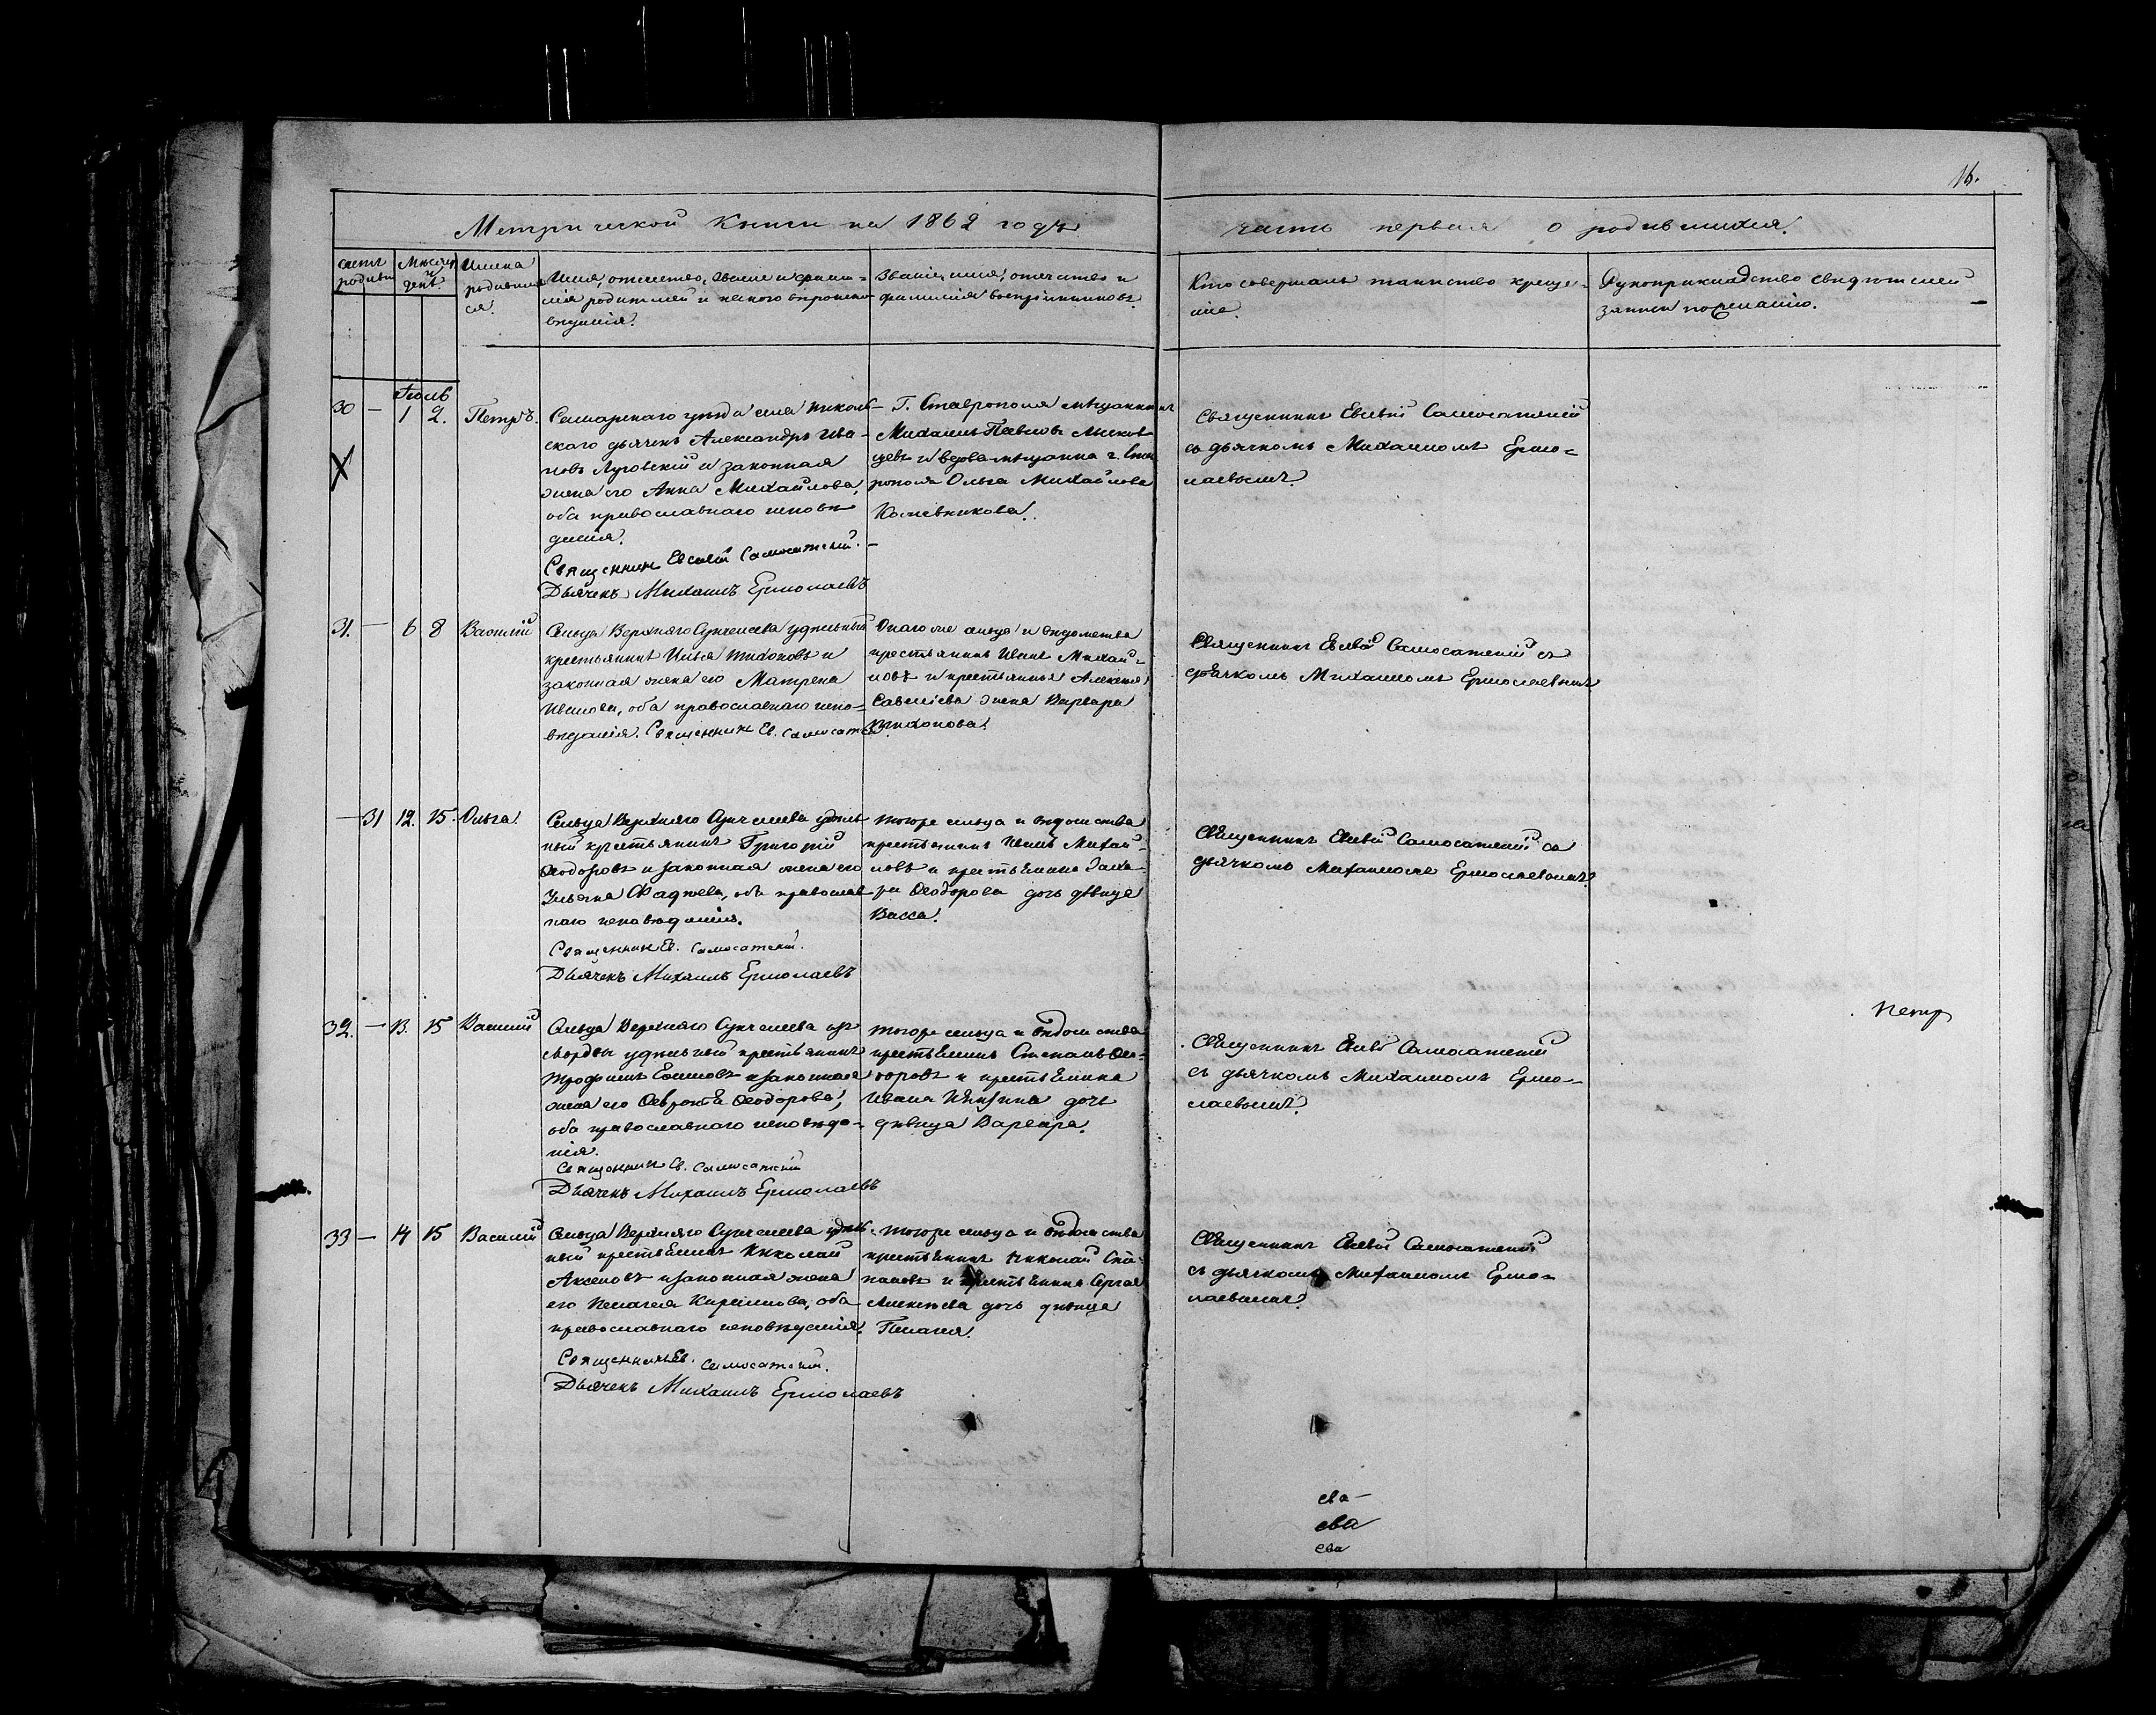 16.
Метрической книги на 1862 годъ
часть первая о родившихся.
Счетъ родивш
Мѣсяцъ и день.
Имена родившихся.
Имя, отчество, званіе и фами-
лія родителей и какого вѣроиспо-
вѣданія.
Званіе, имя, отчество и
фамилія воспріимниковъ.
Кто совершалъ таинство креще-
нія.
Рукоприкладство свидѣтелей
записи по желанію.
Іюль
30 — 1 2. Петръ.
Самарскаго уѣзда села Николь-
скаго дьячекъ Александръ Ива-
новъ Луговскій и законная
жена его Анна Михайлова,
оба православнаго исповѣ
данія.
Священникъ Евсевій Самосатскій.
Дьячекъ Михаилъ Ермолаевъ
Г. Ставрополя мѣщанинъ
Михаилъ Павловъ
и вдова мѣщанка г. Став
рополя Ольга Михайлова
Кожевникова.
Священникъ Евсевій Самосатскій
съ дьячкомъ Михаиломъ Ермо-
лаевымъ.
X
31. — 6 8 Василій
Сельца Верхняго Сунчелеева удѣльный
крестьянинъ Илья Тихоновъ и
законная жена его Матрена
Иванова, оба православнаго испо-
вѣданія. Священникъ Ев. Самосатскій
Онаго же сельца и вѣдомства
крестьянинъ Иванъ Михай-
ловъ и крестьянина Алексѣя
Савельева жена Варвара
Тихонова.
Священникъ Евсевій Самосатскій съ
дьячкомъ Михаиломъ Ермолаевымъ
— 31 12. 15. Ольга.
Сельца Верхняго Сунчелеева удѣль
ный крестьянинъ Григорій
Ѳеодоровъ и законная жена его
Ульяна Фадѣева, оба православ
наго исповѣданія.
Священникъ Ев. Самосатскій.
Дьячекъ Михаилъ Ермолаевъ
Того же сельца и вѣдомства
крестьянинъ Иванъ Михай-
ловъ и крестьянина Заха-
ра Ѳеодорова дочь дѣвица
Васса.
Священникъ Евсевій Самосатскій съ
дьячкомъ Михаиломъ Ермолаевымъ.
32. — 13. 15 Василій
Сельца Верхняго Сунчелеева изъ
Мордвы удѣльный крестьянинъ
Трофимъ Ефимовъ и законная
жена его Ѳеврокья Ѳеодорова,
оба православнаго исповѣда-
нія.
Священникъ Ев. Самосатскій
Дьячекъ Михаилъ Ермолаевъ
Того же сельца и вѣдомства
крестьянинъ Степанъ Ѳео-
доровъ и крестьянина
Ивана дочь
дѣвица Варвара.
Священникъ Евсевій Самосатскій
съ дьячкомъ Михаиломъ Ермо-
лаевымъ.
Петр
33 — 14 15 Василій
Сельца Верхняго Сунчелеева удѣль
ный крестьянинъ Николай
Аксеновъ и законная жена
его Пелагея Кириллова, оба
православнаго исповѣданія.
Священникъ Ев. Самосатскій.
Дьячекъ Михаилъ Ермолаевъ
Того же сельца и вѣдомства
крестьянинъ Николай Сте-
пановъ и крестьянина Сергея
Алексѣева дочь дѣвица
Пелагея.
Священникъ Евсевій Самосатскій
съ дьячкомъ Михаиломъ Ермо-
лаевымъ.
ева —
ева
ева